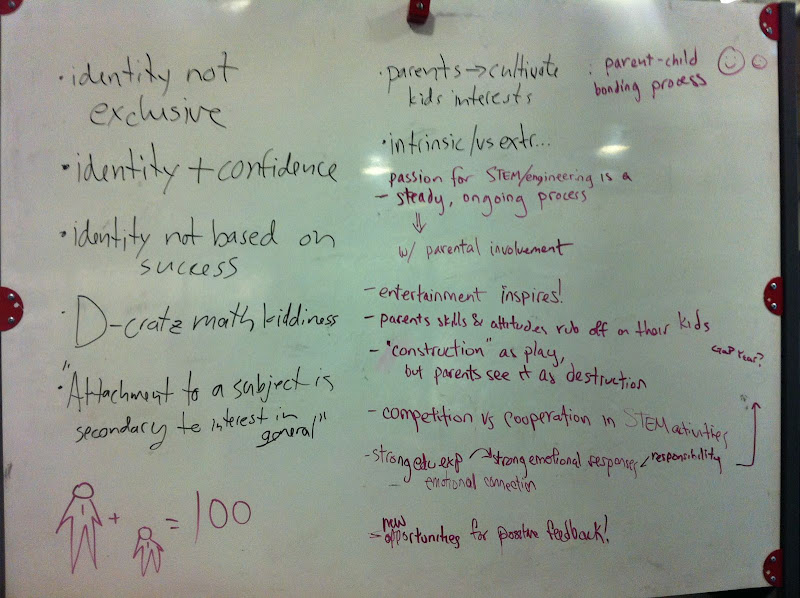 · identity not
exclusive
· identity + confidence
· identity not based on
success
· D-cratz math kiddiness
· "Attachment to a subject is
secondary to interest in
general"
+ = 100
· parents → cultivate
kids interests
: parent-child
bonding process
· intrinsic/vs extr...
passion for STEM/engineering is a
- steady, ongoing process
⇓
w/ parental involvement
- entertainment inspires!
- parents skills & attitudes rub off on their kids
Gap Year?
- "construction" as play,
but parents see it as destruction
- competition vs cooperation in STEM activities
- strong edu exp → strong emotional responses / responsibility
- emotional connection
- new
opportunities for positive feedback!